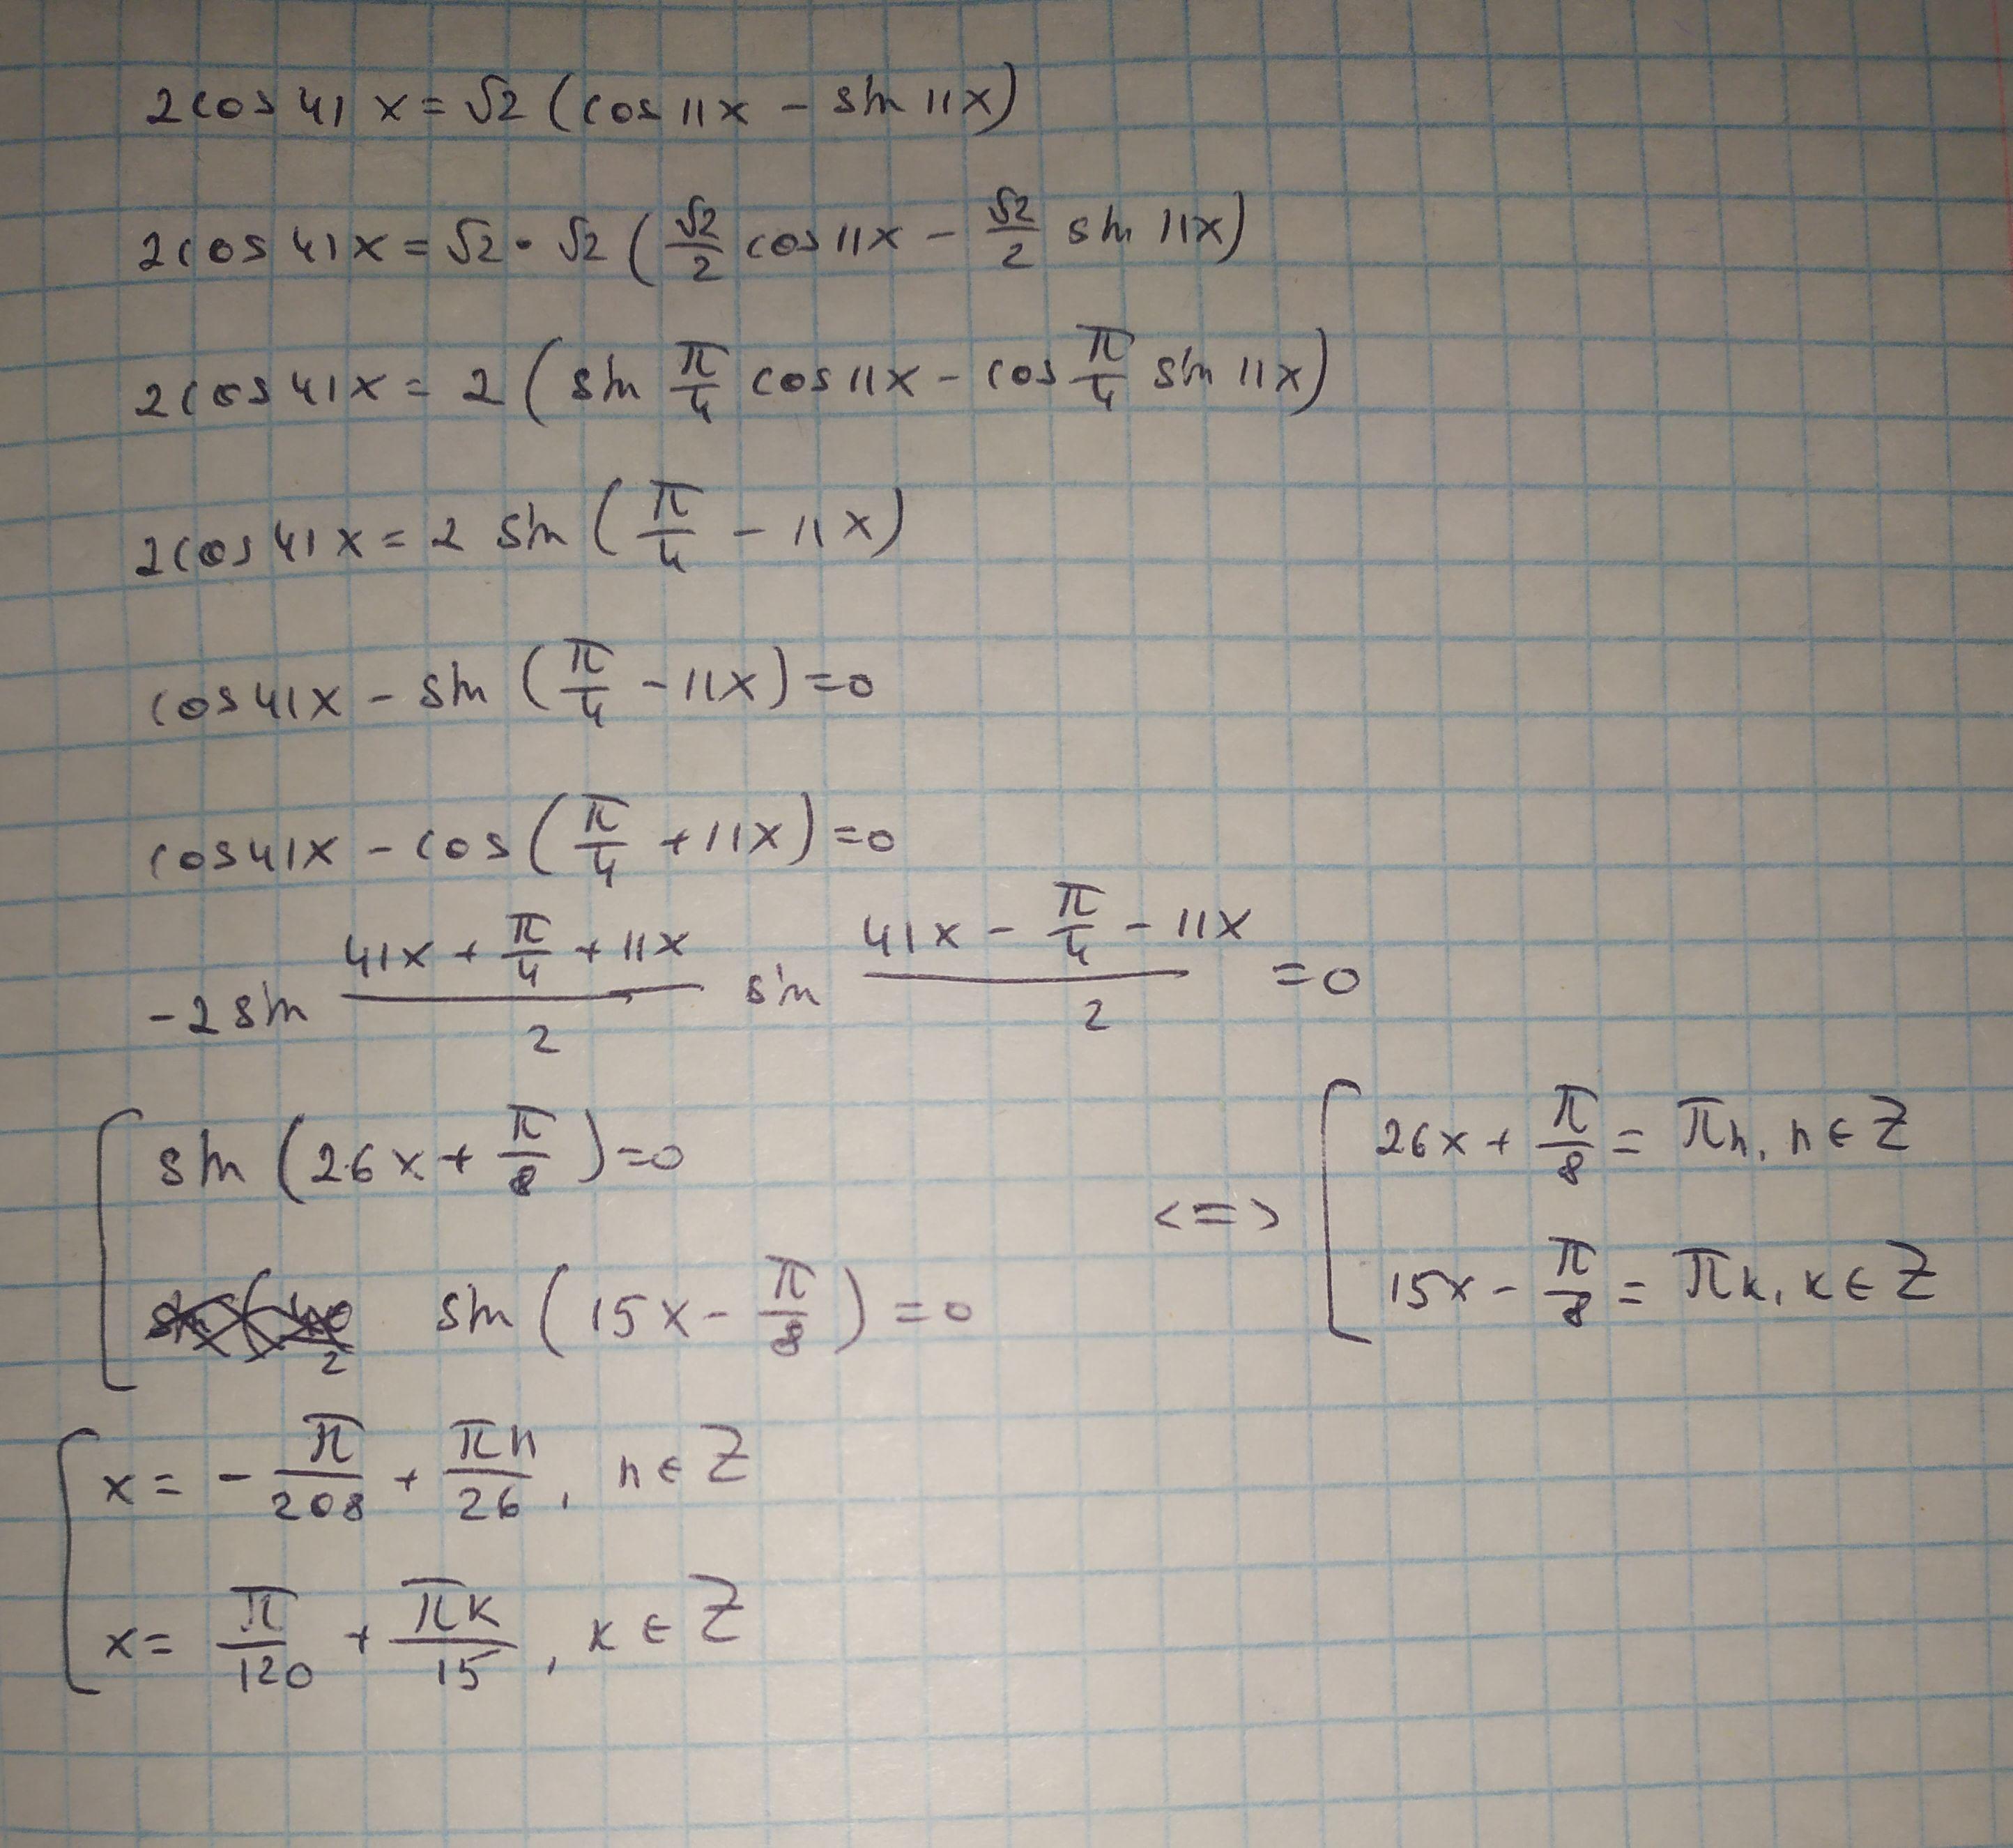 2cos 41x = √2 (cos 11x − sin 11x)
2cos 41x = √2 · √2 (√2/2 cos 11x − √2/2 sin 11x)
2cos 41x = 2 (sin π/4 cos 11x − cos π/4 sin 11x)
2cos 41x = 2 sin (π/4 − 11x)
cos 41x − sin (π/4 − 11x) = 0
cos 41x − cos (π/4 + 11x) = 0
−2 sin (41x + π/4 + 11x)/2 sin (41x − π/4 − 11x)/2 = 0
[ sin (26x + π/8) = 0
sin (15x − π/8) = 0
<=> [ 26x + π/8 = πn, n ∈ Z
15x − π/8 = πk, k ∈ Z
[ x = − π/208 + πn/26, n ∈ Z
x = π/120 + πk/15, k ∈ Z